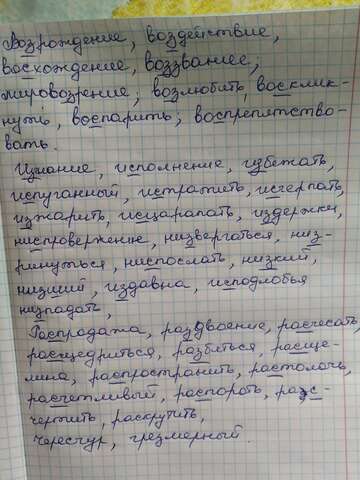 Возрождение, воздействие,
восхождение, воззвание,
мировозрение, возлюбить, восклик-
нуть, воспарить, воспрепятство-
вать.
Изгнание, исполнение, избежать,
испуганный, истратить, исчерпать,
изжарить, исцарапать, издержки,
ниспровержение, низвергаться, низ-
ринуться, ниспослать, низкий,
низший, издавна, исподлобья
ниспадать,
Распродажа, раздвоение, расчесать,
расщедриться, разбиться, расще-
лина, распространить, растолочь,
расчетливый, распороть, рас-
чертить, раскрутить,
Чересчур, чрезмерный.